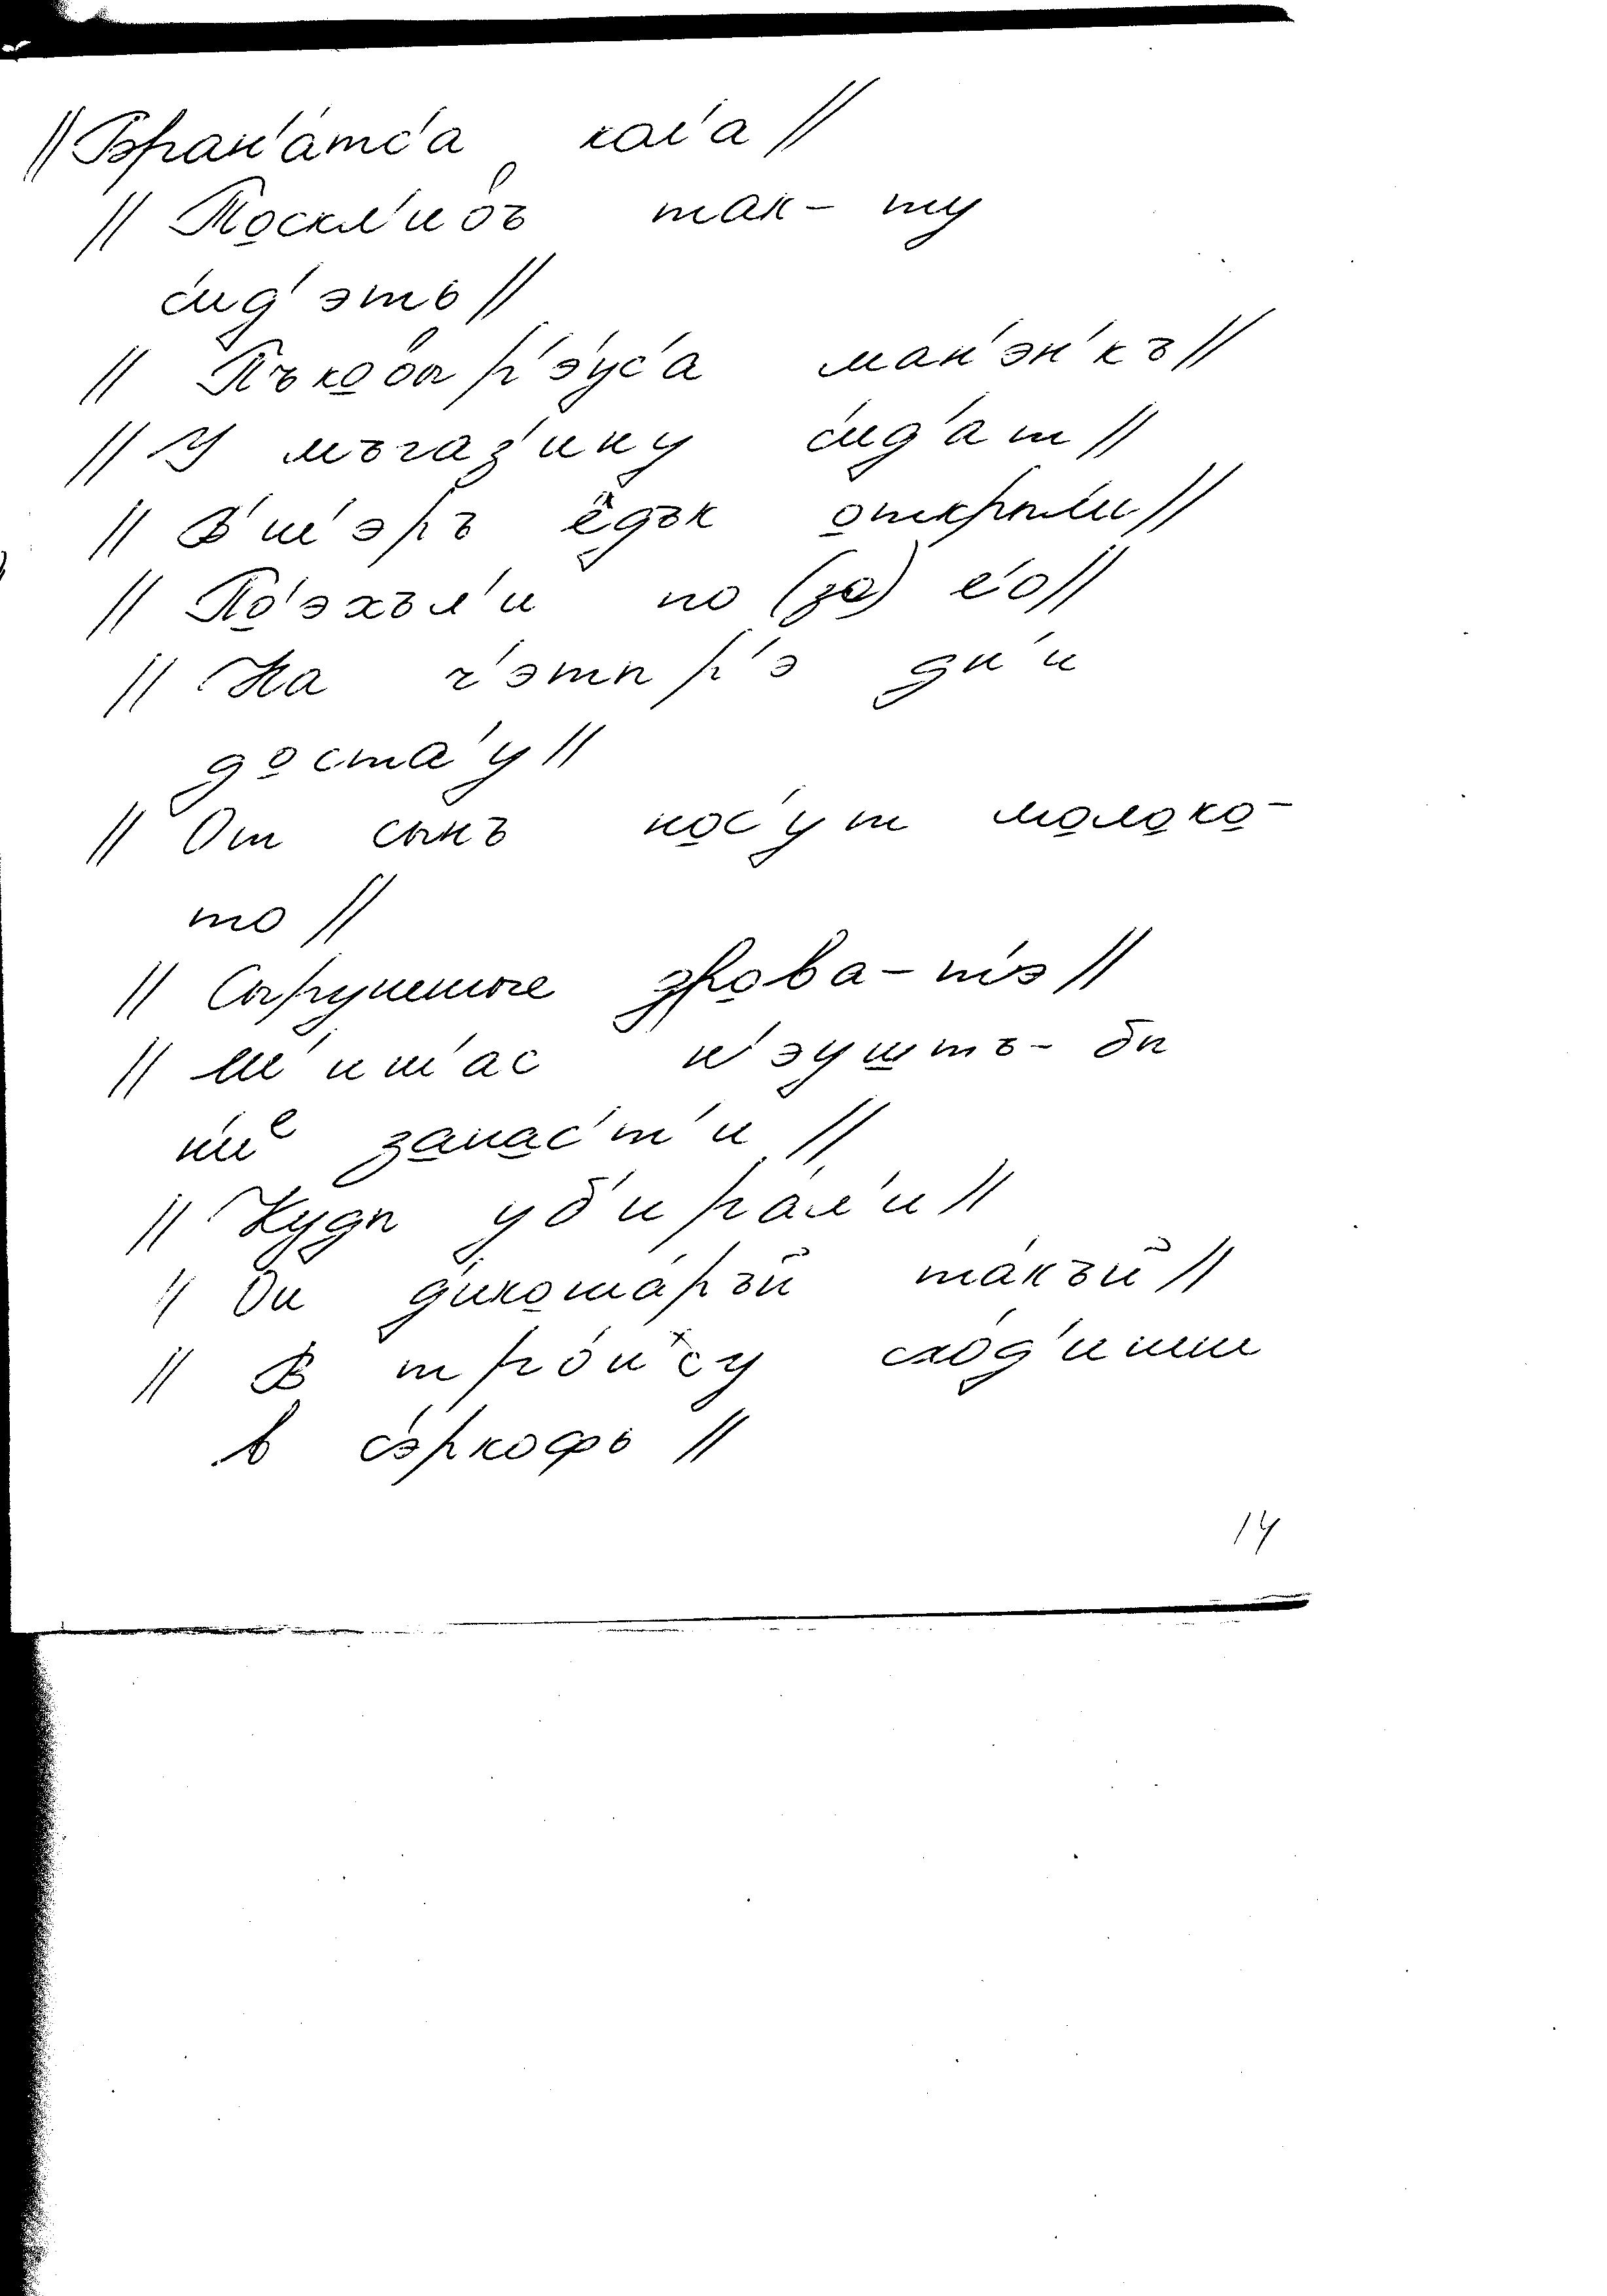 // Бран'áтс'а кагá //
// Тоскл'ивъ так-ту
с'ид'эть //
// Пъковыр'э́ус'а ман'эн'къ //
// У мъгаз'ину с'ид'ат //
// В'ш'эръ ёдък открыл'и //
// По'эхъл'и по (за) его //
// На ч'этыр'э дн'и
доста'у //
// От сынъ нос'ут молоко-
то //
// Сырущые дрова-т'э //
// Ш'иш'ас н'эушть- бы
н'иᵉ запас'т'и //
// Куды уб'ирал'и //
// Он д'икошáръй тáкъй //
// В трóиcу схóд'иши
в сэ́ркофь //
14